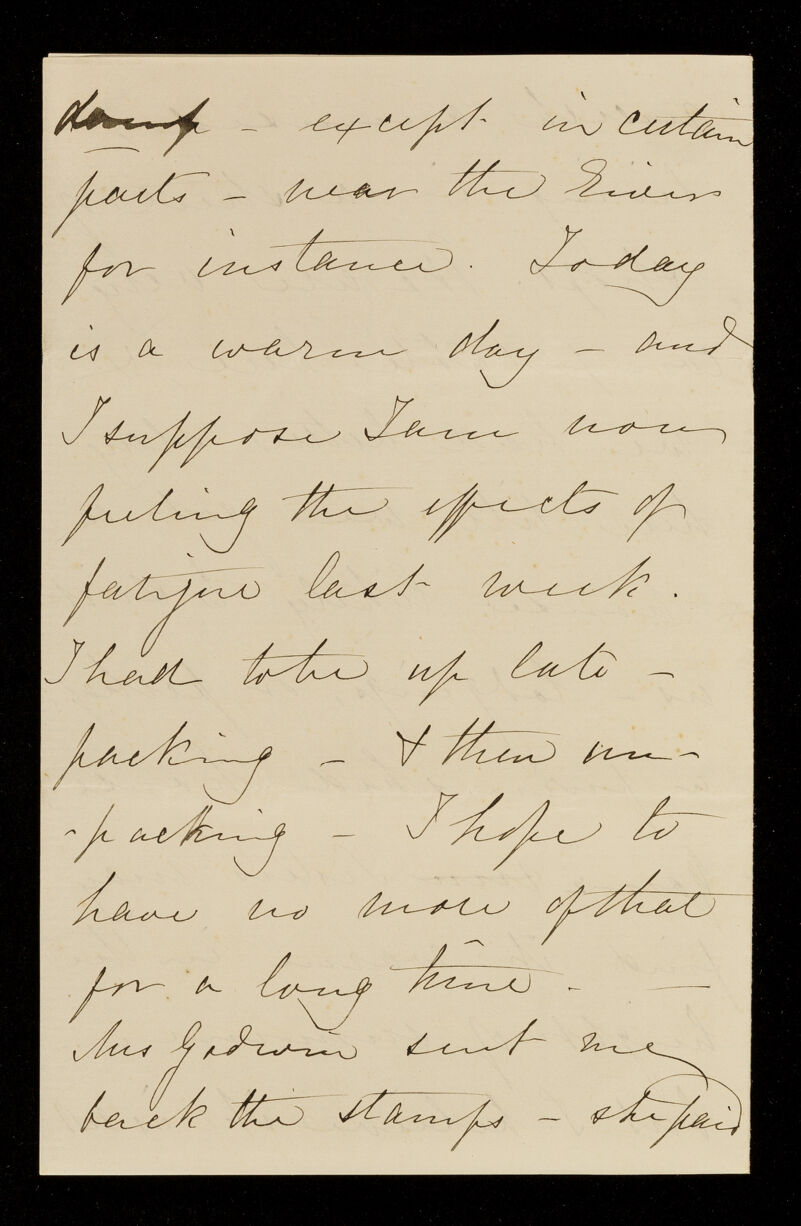 damp - except in certain
parts - near the River
for instance. Today
is a warm day - and
I suppose I am now
feeling the effects of
fatigue last week.
I had to be up late -
packing - & then un-
-packing - I hope to
have no more of that
for a long time. -
Mrs Godwin sent me
back the stamps - she paid